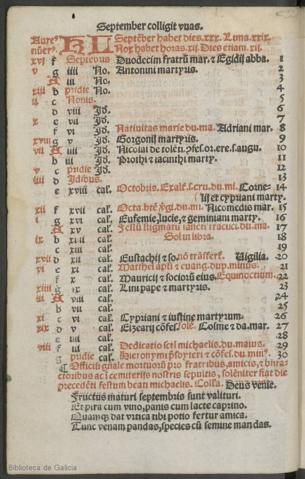 September colligit vuas.
Aure⸗ KL Septēber habet dies .xxx. Luna .xxix.
nūer⁹. Nox habet horas .xij. Dies etiam .xij.
xvj f Septēbris Duodecim fratrū mar. & Egidij abba. 1
v g iiij No. Antonini martyris. 2
A iij No. 3
xiij b pridie No. 4
ij c Nonis. 5
d viij Id. 6
x e vij Id. 7
f vj Id. Natiuitas marie du.ma. Adriani mar. 8
xviij g v Id. Gorgonij martyris. 9
vij A iiij Id. Nicolai de tolēti. 10
b iij Id. Prothi & iacincti marty. 11
c pridie Id. 12
d Idibus. 13
e xviij cal. Octobris. Exalt. s.cru. du.mi. Corne⸗ 14
lij & cypriani marty.
xij f xvij cal. Octa. 15
j g xvj cal. Eufemie, lucie, & geminiani marty. 16
A xv cal. 17
b xiiij cal. Sol in libra. 18
c xiij cal. 19
xvij d xij cal. Eustachij & so. Vigilia. 20
vj e xj cal. Matthei apli & euang. dup. minus. 21
f x cal. Mauricij & sociorū eius. Equinoctium. 22
g ix cal. Lini pape & martyris. 23
A viij cal. 24
b vij cal. 25
c vj cal. Cypriani & iustine martyrum. 26
d v cal. Elzearij cōfes. Cosme & da.mar. 27
e iiij cal. 28
viij f iij cal. Dedicatio scti michaelis. du. maius. 29
g pridie cal. Hieronymi psbyteri & cōfes. du. min⁹. 30
Officiū gñale mortuorū pro fratribus, amicis, & bñfa⸗
ctoribus ac i cemiterijs nostris sepultis, solēniter fiat die
precedēti festum beati michaelis. Deus venie.
Fructus maturi septembris sunt valituri.
Et pira cum vino, panis cum lacte caprino.
Quamq3 dat vrtica tibi potio fertur amica.
Tunc venam pandas, species cū semine mandas.
Biblioteca de Galicia